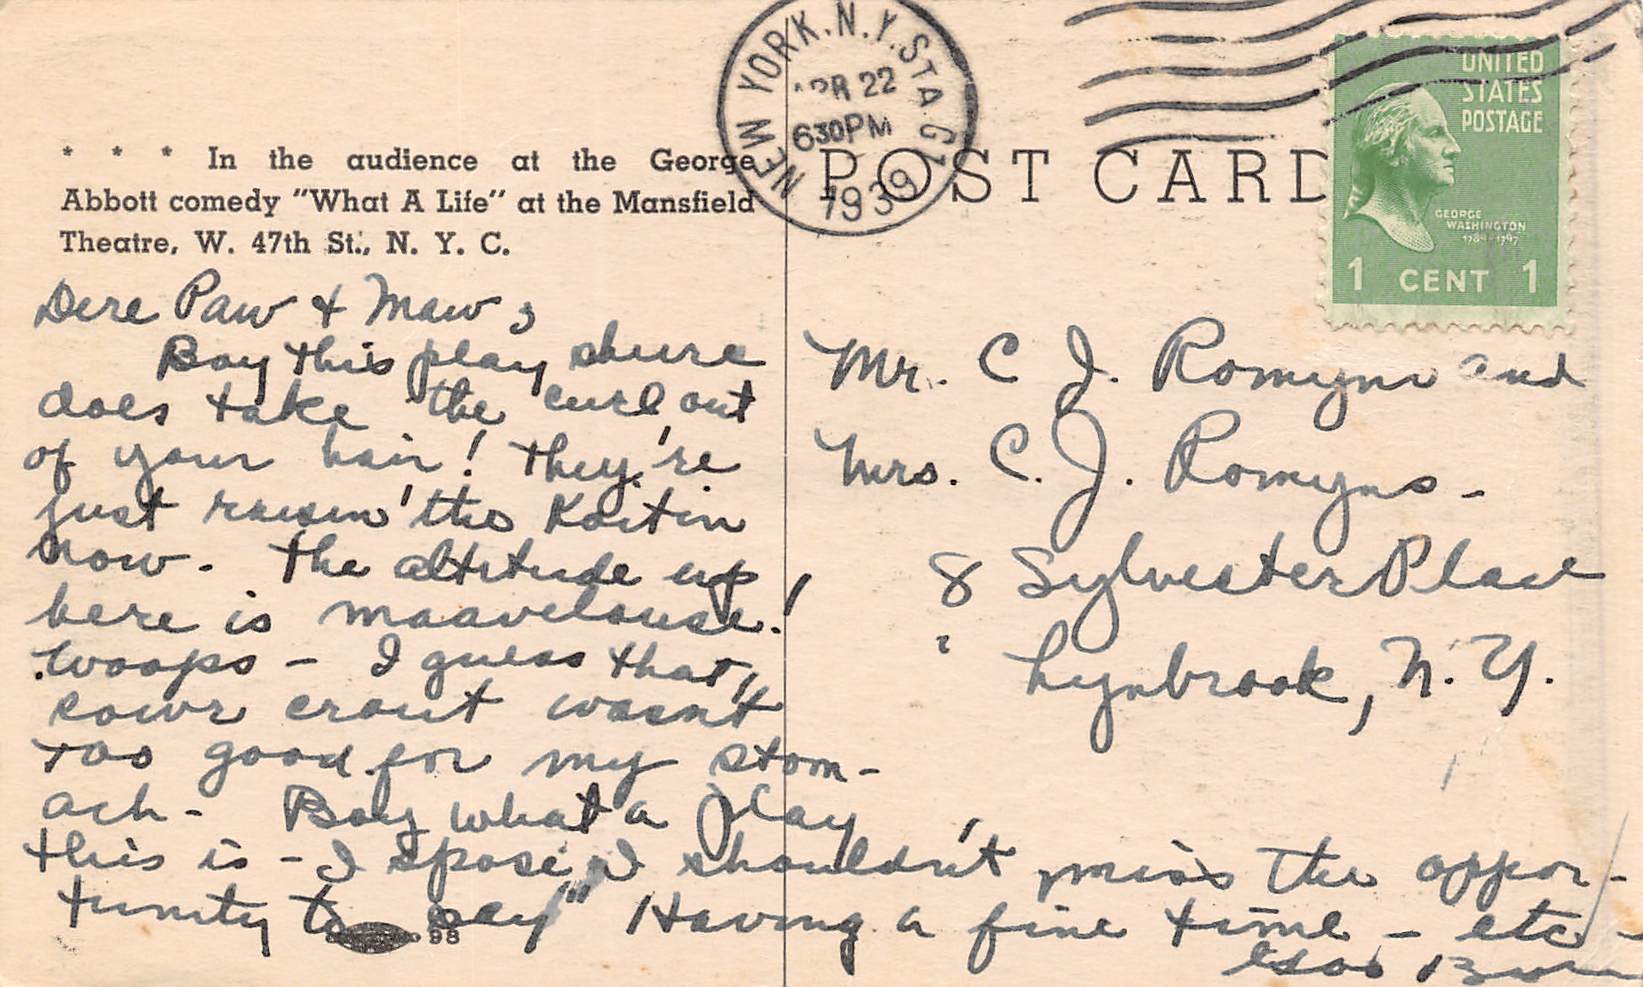 * * * In the audience at the George
Abbott comedy "What A Life" at the Mansfield
Theatre, W. 47th St., N. Y. C.
Dere Paw & Maw,
Boy this play shure
does take the curl out
of your hair! They're
just raisen' the Kortin
now. The altitude up
here is maavelouse!
Woops - I guess that
sowr crout wasn't
too good for my stom-
ach - Boy what a play
this is - I spose I shouldn't miss the oppor-
tunity to say "Having a fine time - etc -
98
NEW YORK, N.Y. STA. G
APR 22
630PM
1939
POST CARD
UNITED
STATES
POSTAGE
GEORGE
WASHINGTON
1789-1797
1 CENT 1
Mr. C J. Romyns and
Mrs. C. J. Romyns -
8 Sylvester Place
Lynbrook, N. Y.